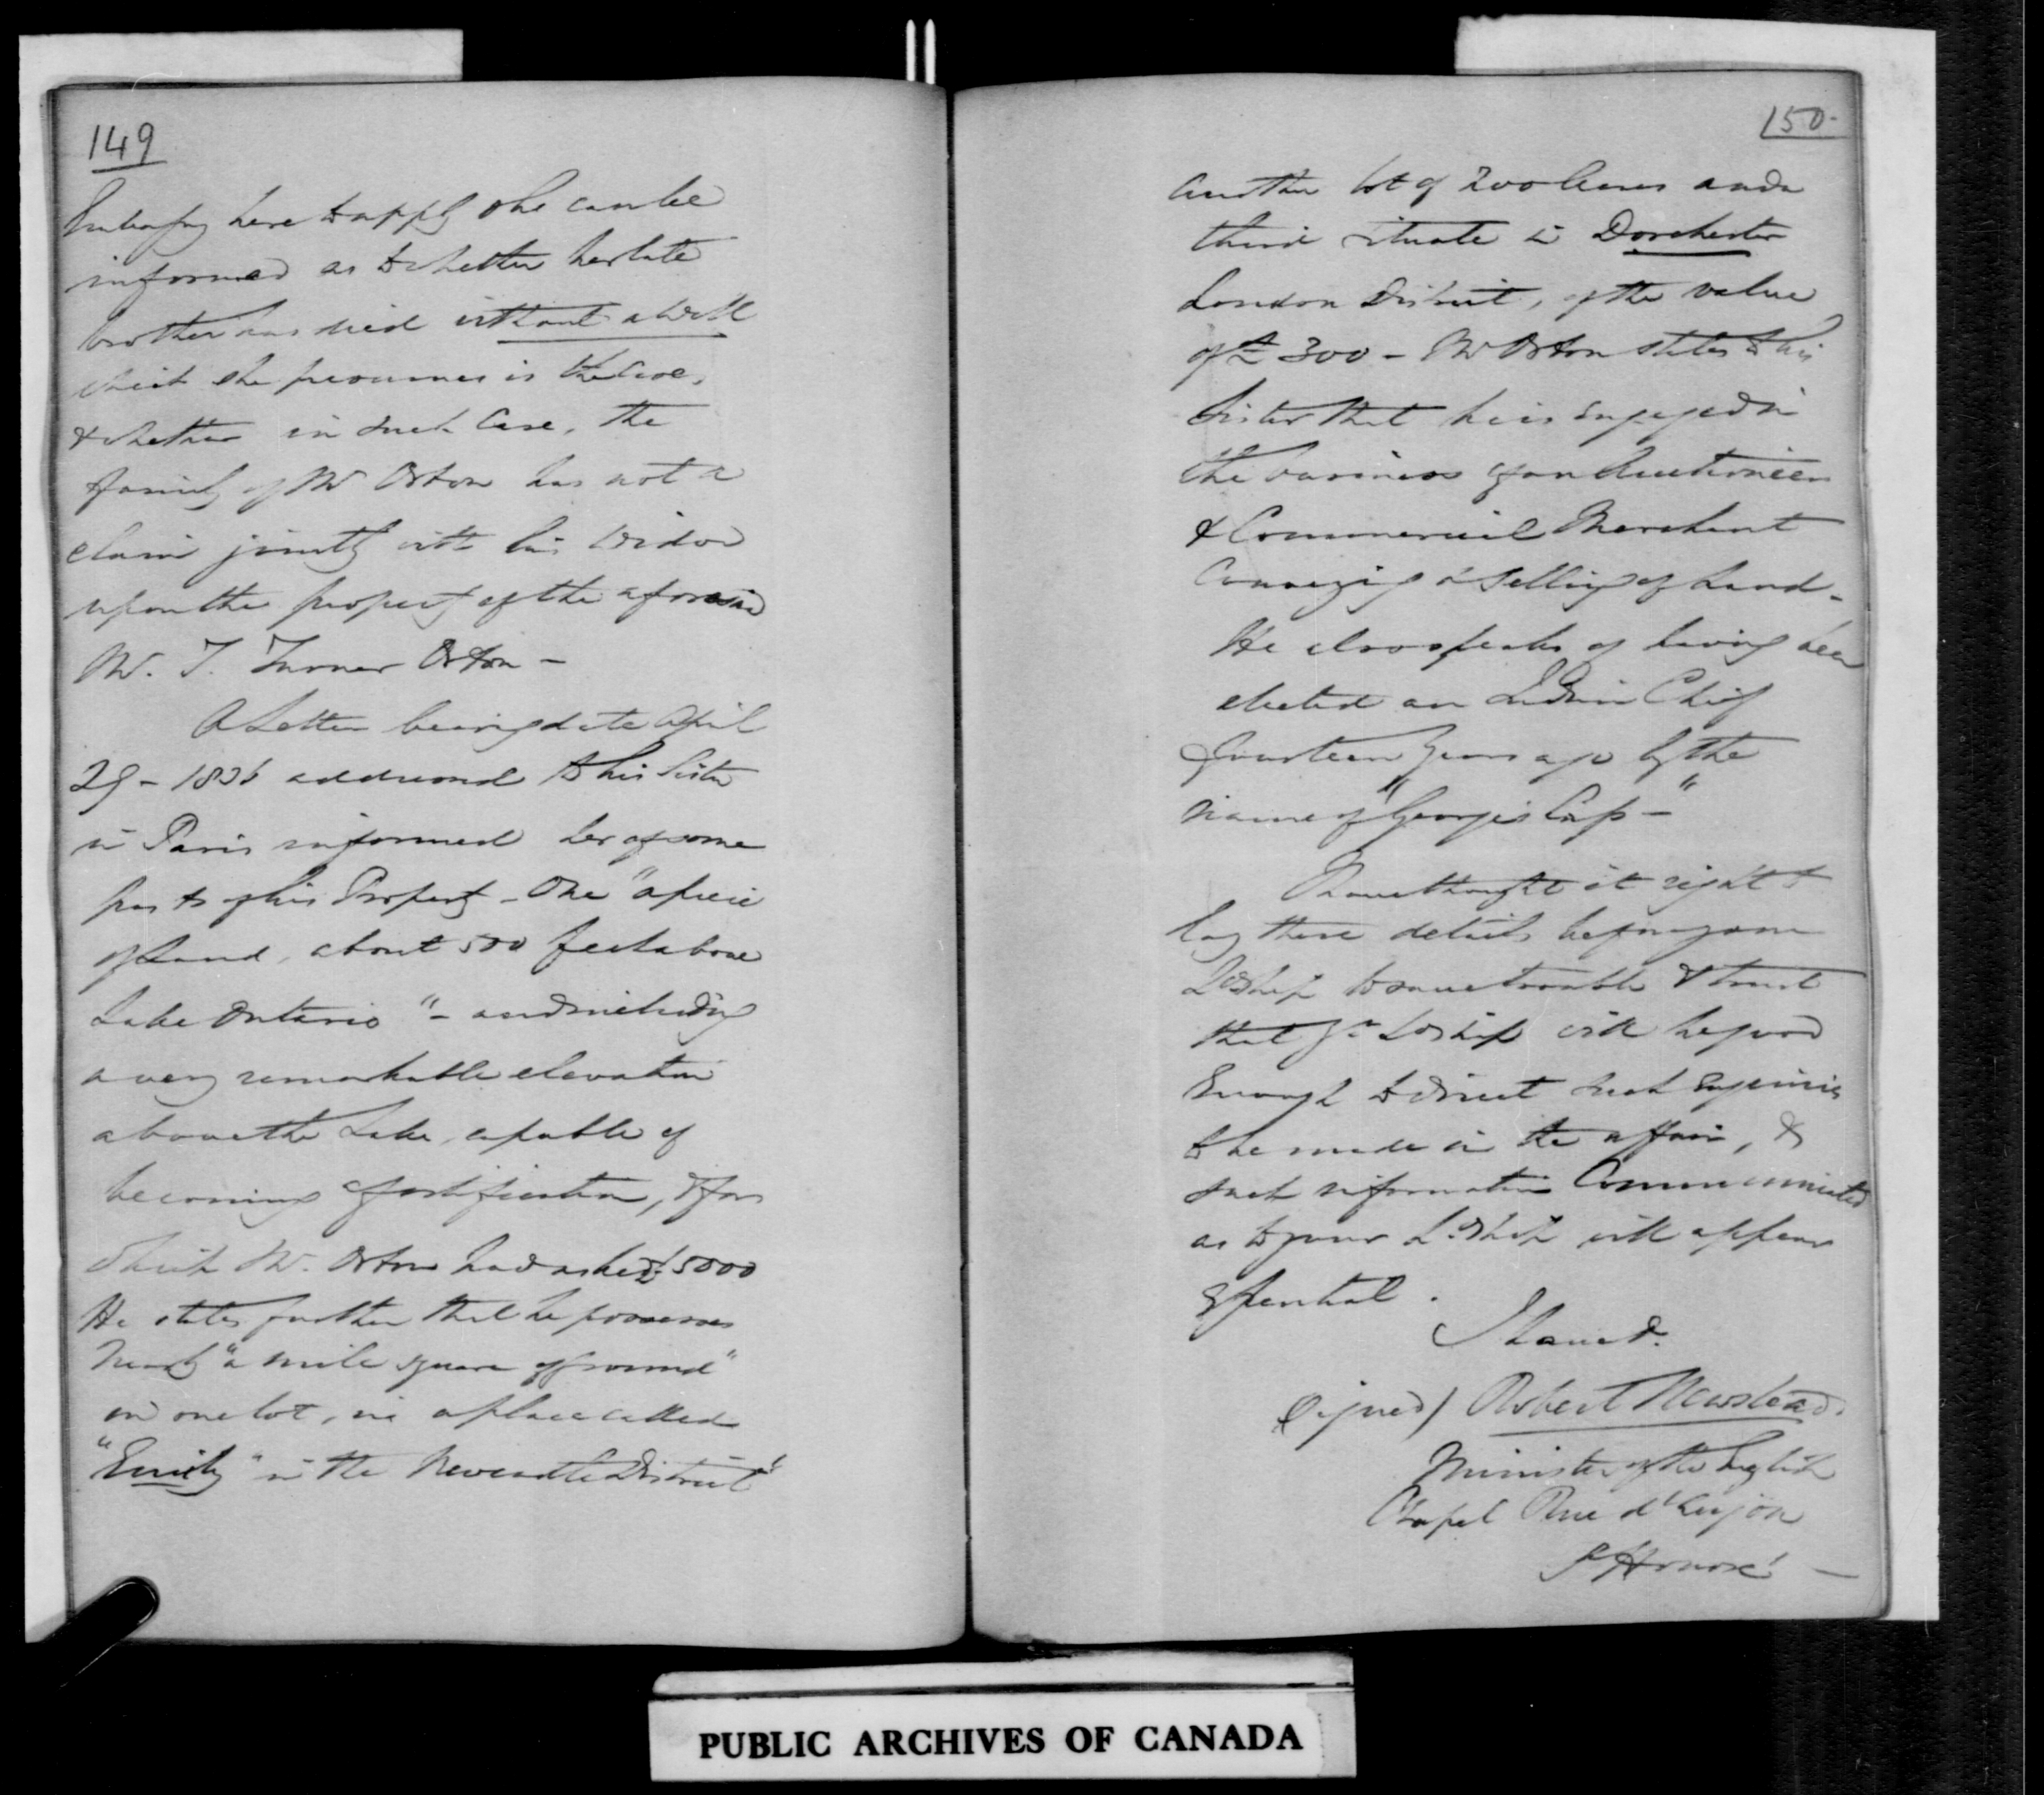 149
Embassy here to apply she can be
informed as to whether her late
brother has died without a Will
which she presumes is the case,
& whether in such Case, the
family of Mr Orton has not a
claim jointly with his Widow
upon the property of the aforesaid
Mr. T. Turner Orton –
A Letter bearing date April
29 – 1836 addressed to his Sister
in Paris informed her of some
parts of his Property – One "a piece
of Land, about 500 feet above
Lake Ontario" – and including
a very remarkable elevation
above the Lake, capable of
becoming a fortification, & for
which Mr. Orton had asked £5000
He states further that he possesses
nearly "a mile square of ground"
in one lot, in a place called
"Emily" in the Newcastle District"
150
another lot of 200 Acres and a
third situate in Dorchester
London District, of the value
of £300 – Mr Orton states to his
Sister that he is engaged in
the business of an Auctioneer
& Commercial Merchant
Conveying & Selling of Land –
He also speaks of having been
elected an Indian Chief
fourteen years ago by the
name of "Georgis Cap –"
I have thought it right to
lay these details before your
Ldship to save trouble & trust
that Yr Ldship will be good
Enough to direct such Enquiries
to be made in the affair, &
such information Communicated
as to your Ldship will appear
Essential.
I have &.
(signed) Robert Newstead.
Minister of the English
Chapel Rue d'Anjou
St Honoré –
PUBLIC ARCHIVES OF CANADA